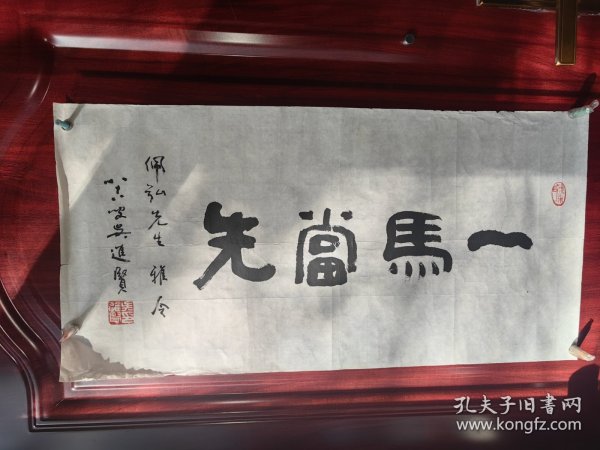 一馬當先
佩弘先生雅令
八十六叟吳進賢
孔夫子旧书网
www.kongfz.com